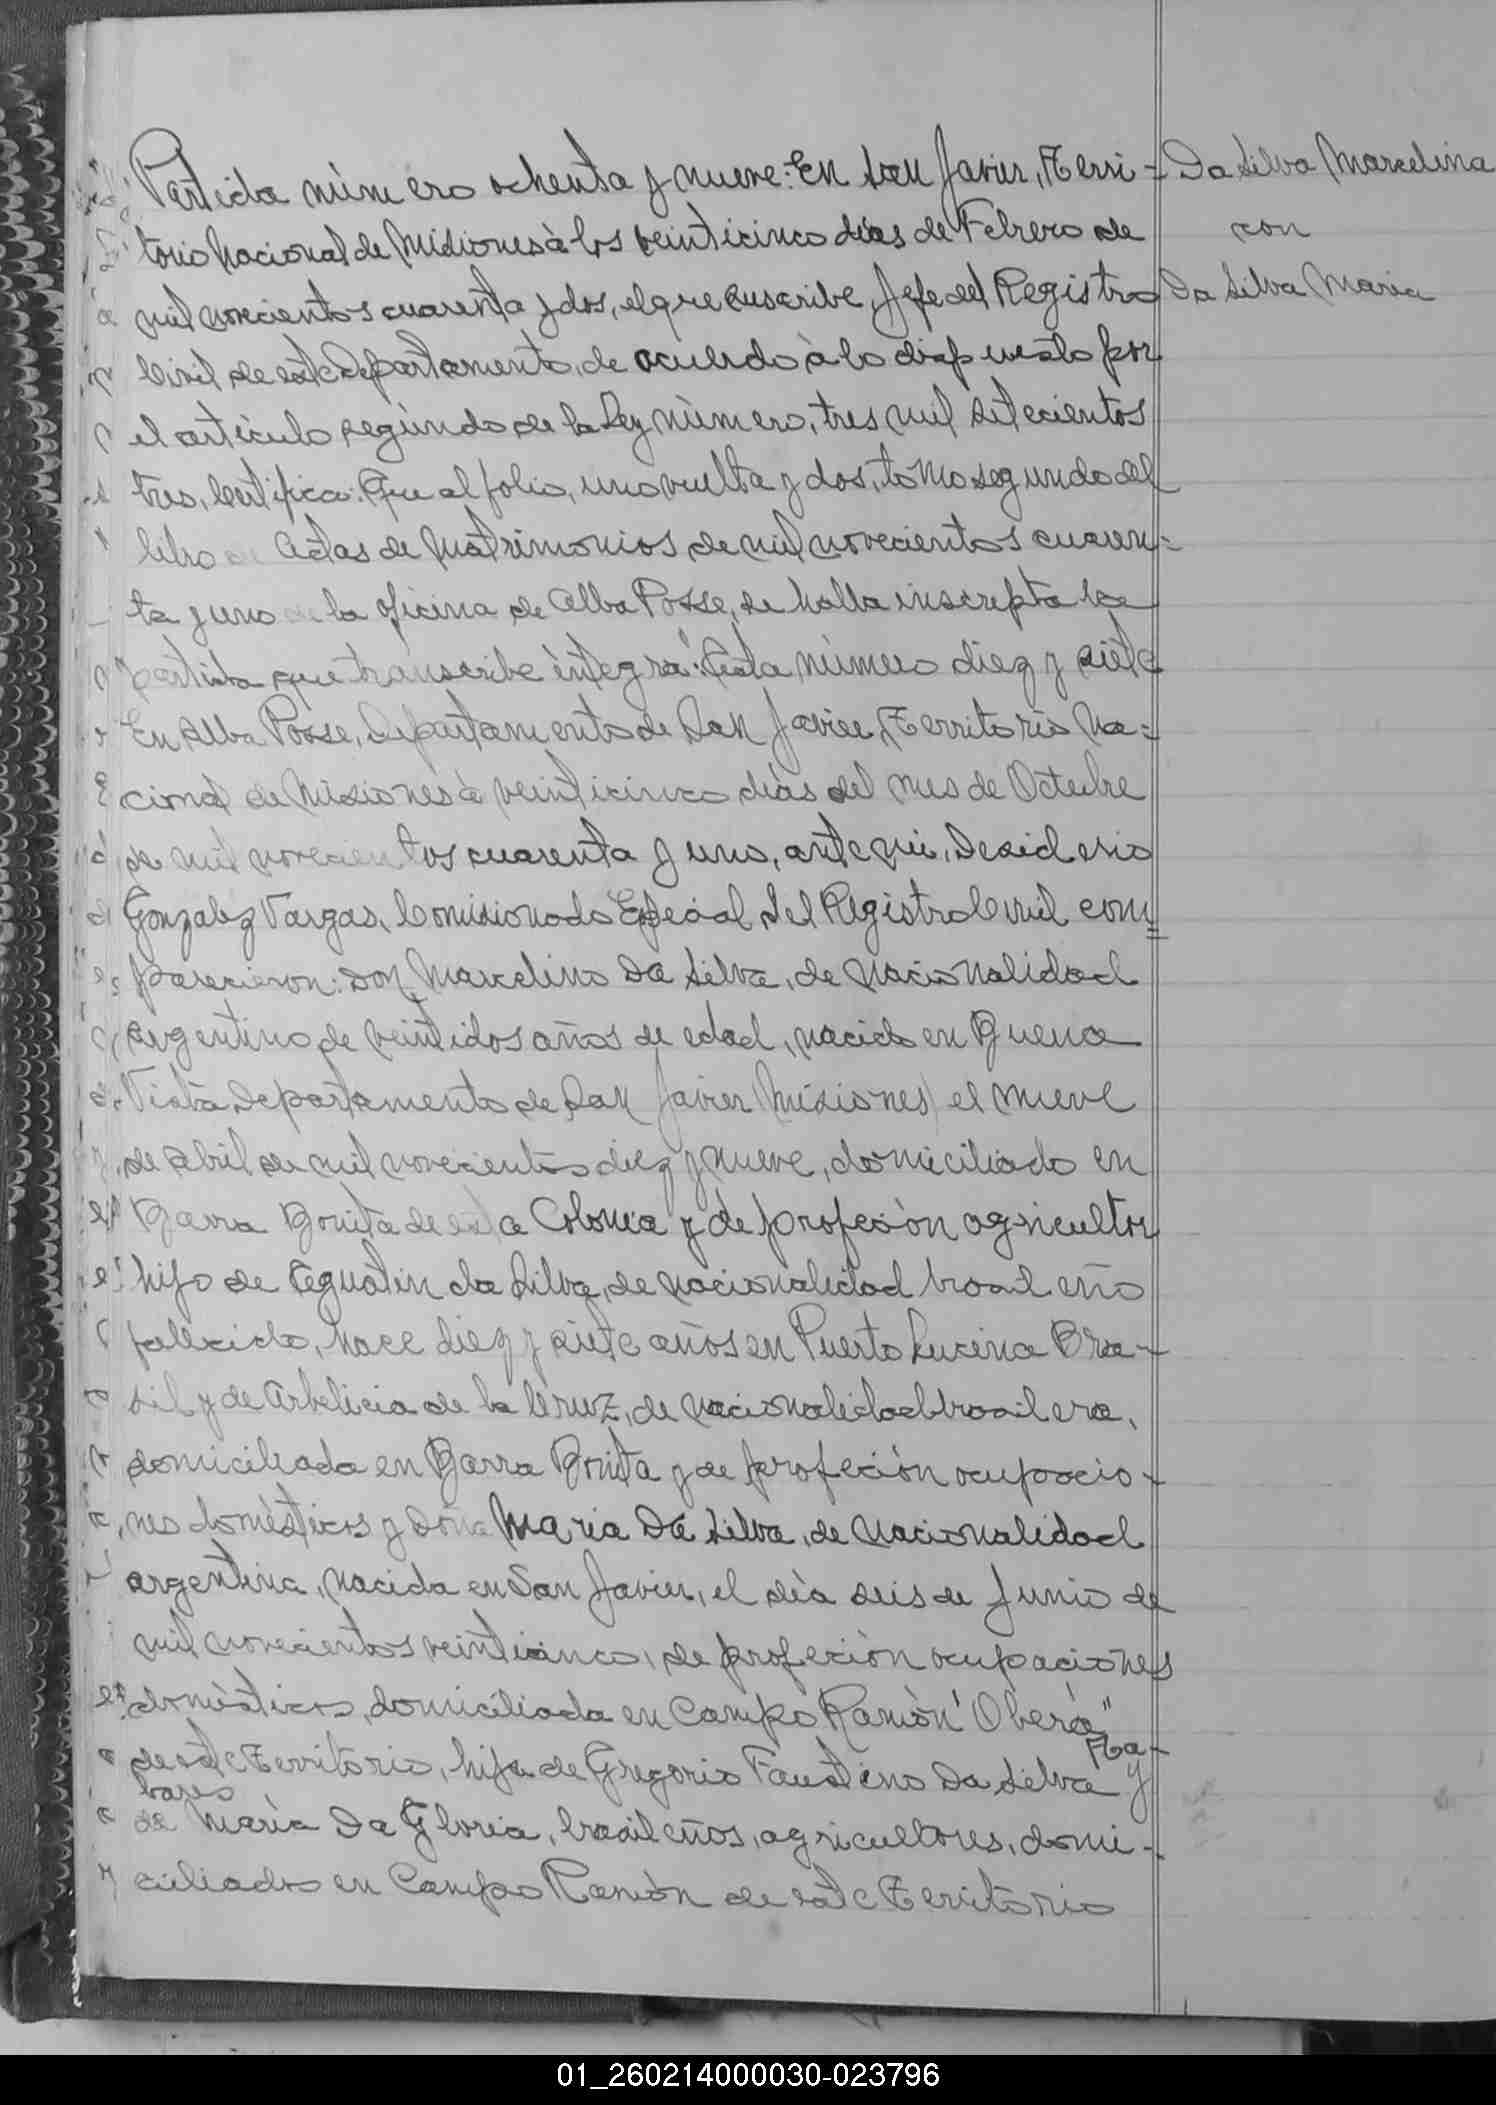 Partida número ochenta y nueve: En San Javier, Terri-
torio Nacional de Misiones à los veinticinco dias de Febrero de
mil novecientos cuarenta y dos, el que suscribe, Jefe del Registro
Civil de este Departamento, de acuerdo à lo dispuesto por
el artículo segùndo de la Ley nùmero, tres mil setecientos
tres, Certifica: Que al folio, uno vuelta y dos, tomo segundo del
libro de Actas de Matrimonios de mil novecientos cuaren-
ta y uno de la oficina de Alba Posse, se halla inscripta la
partida que transcribe ìntegra: "Acta nùmero diez y siete
En Alba Posse, Departamento de San Javier, Territorio Na-
cional de Misiones à veinticinco dìas del mes de Octubre
de mil novecientos cuarenta y uno, ante mi, Desiderio
Gonzalez Vargas, Comisionado Especial del Registro Civil com=
parecieron: Don Marcelino Da Silva, de nacionalidad
argentino de veintidos años de edad, nacido en Buena
Vista Departamento de San Javier (Misiones) el nueve
de Abril de mil novecientos diez y nueve, domiciliado en
Barra Bonita de esta Colonia y de profesiòn agricultor
hijo de Agustin da Silva, de nacionalidad brasileño
fallecido, hace diez y siete años en Puerto Lucena Bra-
sil y de Arbelicia de la Cruz, de nacionalidad brasilera,
domiciliada en Barra Bonita y de profesiòn ocupacio-
nes domèsticas y Doña Maria Da Silva, de nacionalidad
argentina, nacida en San Javier, el dìa seis de Junio de
mil novecientos veinticinco, de profesiòn ocupaciones
domèsticas, domiciliada en Campo Ramòn "Oberà"
de este Territorio, hija de Gregorio Faustino Da Silva y
de Marìa Da Gloria, brasileños, agricultores, domi-
ciliados en Campo Ramòn de este Territorio
Da Silva Marcelino
con
Da Silva Maria
01_260214000030-023796